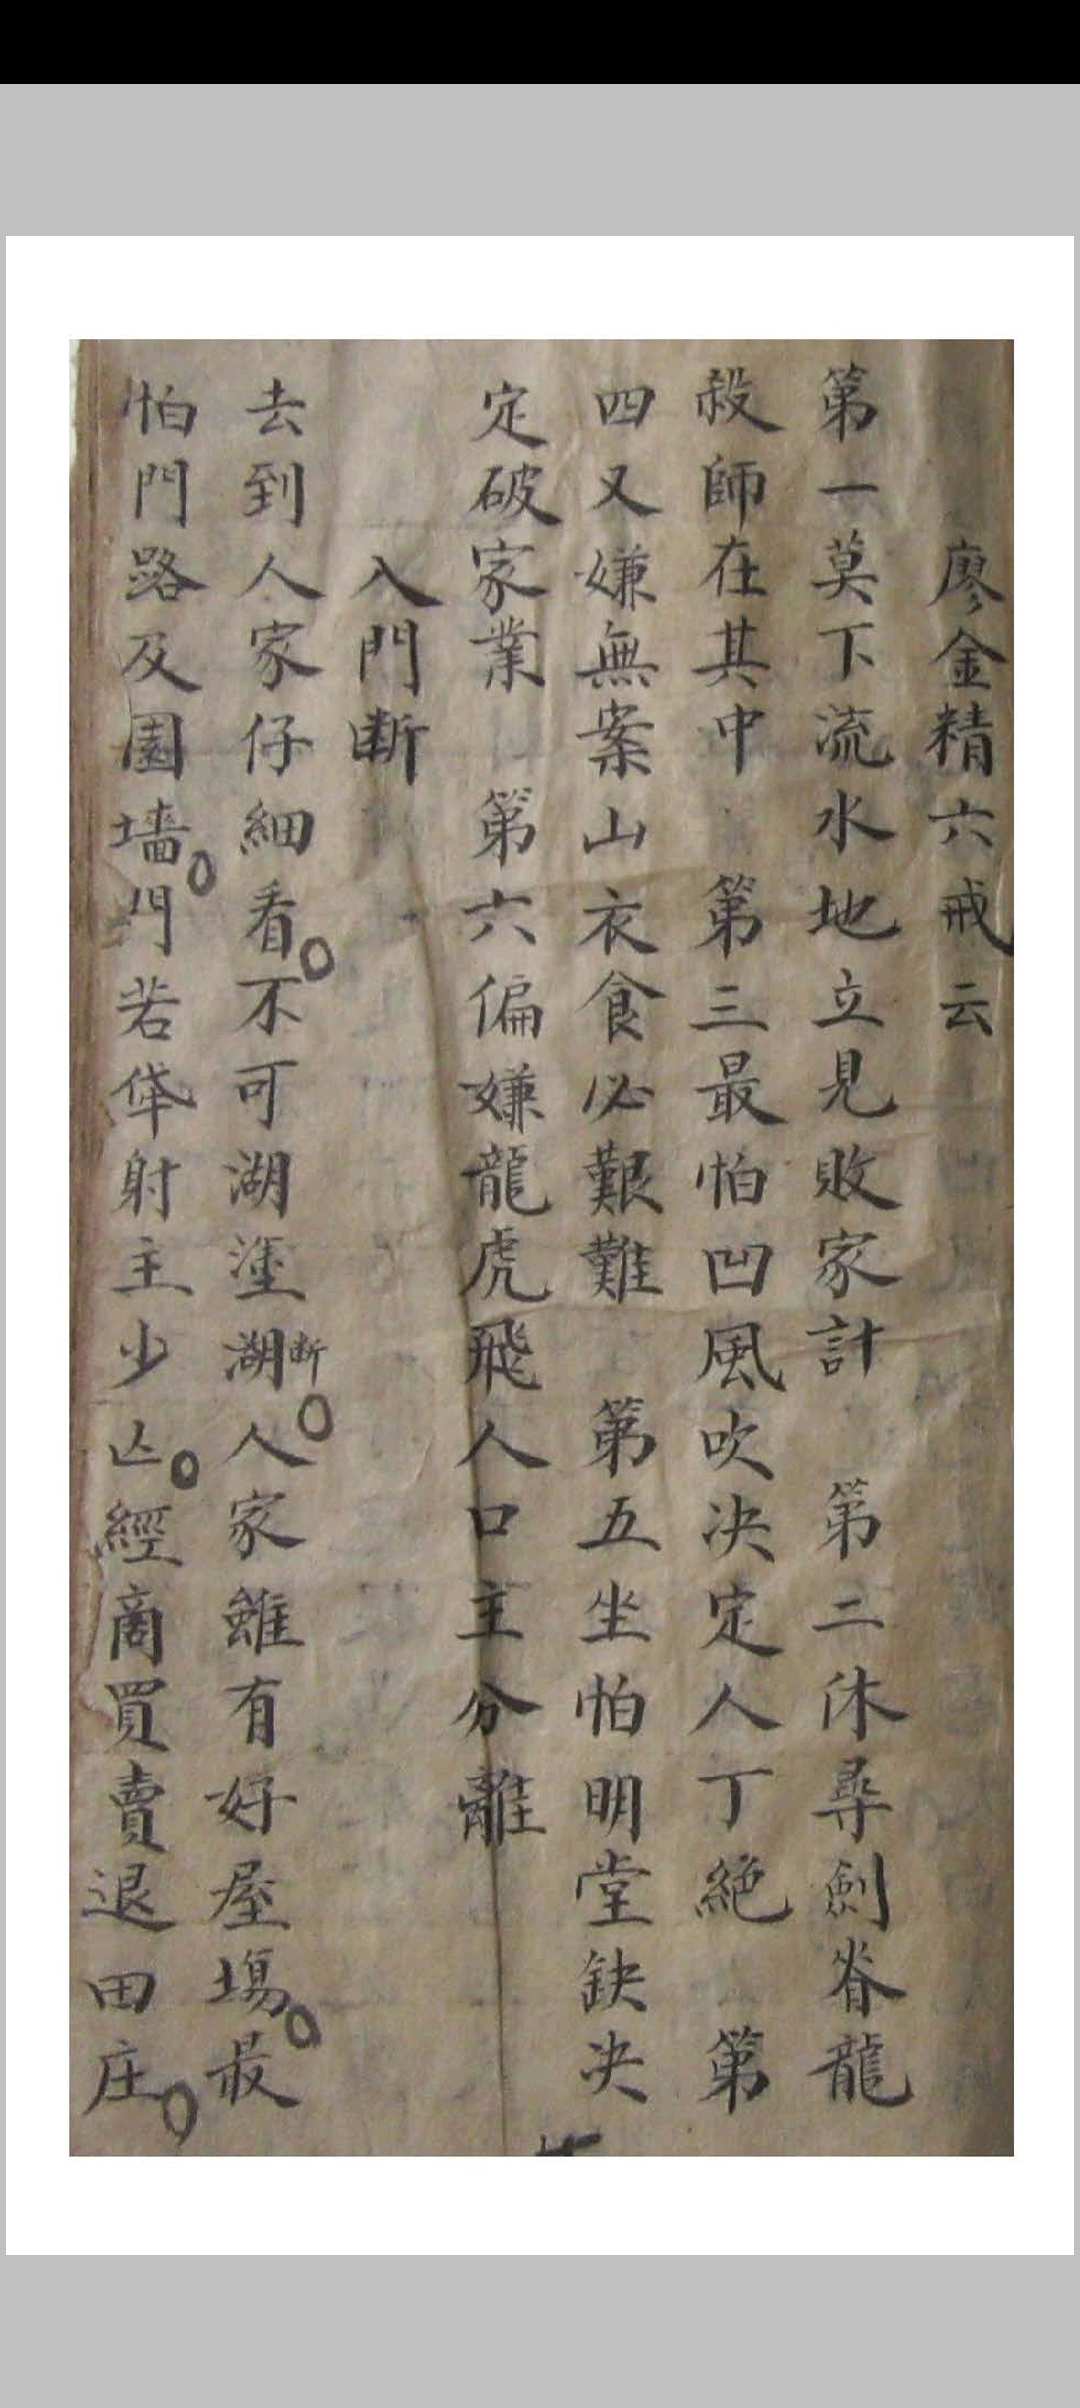 廖金精六戒云
第一莫下流水地立見敗家計　第二休尋劍脊龍
殺師在其中　第三最怕凹風吹决定人丁絕　第
四又嫌無案山衣食必艱難　第五坐怕明堂缺决
定破家業　第六偏嫌龍虎飛人口主分離
入門斷
去到人家仔細看。不可湖塗湖断。人家雖有好屋場。最
怕門路及園墻。門若𠦜射主少亡。經商買賣退田庄。